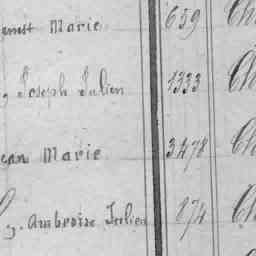 Marie 659 Ch
y Joseph Julien 1333 Ch
ean Marie 3478 Ch
y. Ambroise Julien 874 Ch